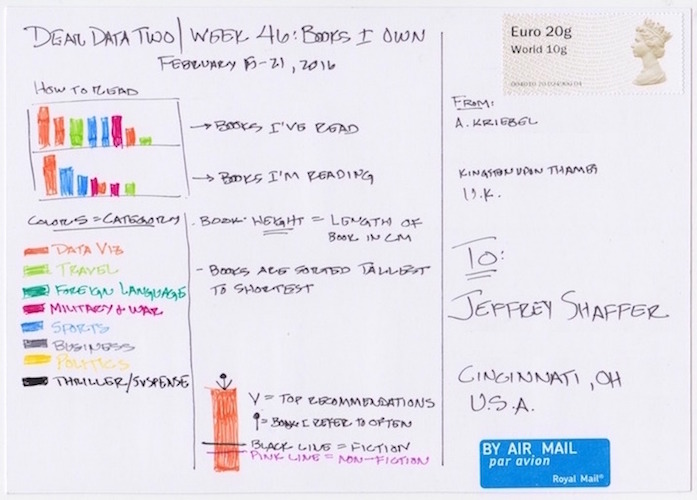 DEAR DATA TWO | WEEK 46: BOOKS I OWN
FEBRUARY 15-21, 2016
HOW TO READ
→ BOOKS I'VE READ
→ BOOKS I'M READING
COLORS = CATEGORY
DATA VIZ
TRAVEL
FOREIGN LANGUAGE
MILITARY & WAR
SPORTS
BUSINESS
POLITICS
THRILLER/SUSPENSE
- BOOK HEIGHT = LENGTH OF
BOOK IN CM
- BOOKS ARE SORTED TALLEST
TO SHORTEST
V = TOP RECOMMENDATIONS
= BOOK I REFER TO OFTEN
BLACK LINE = FICTION
PINK LINE = NON-FICTION
Euro 20g
World 10g
FROM:
A. KRIEBEL
KINGSTON UPON THAMES
U.K.
TO:
JEFFREY SHAFFER
CINCINNATI, OH
U.S.A.
BY AIR MAIL
par avion
Royal Mail®